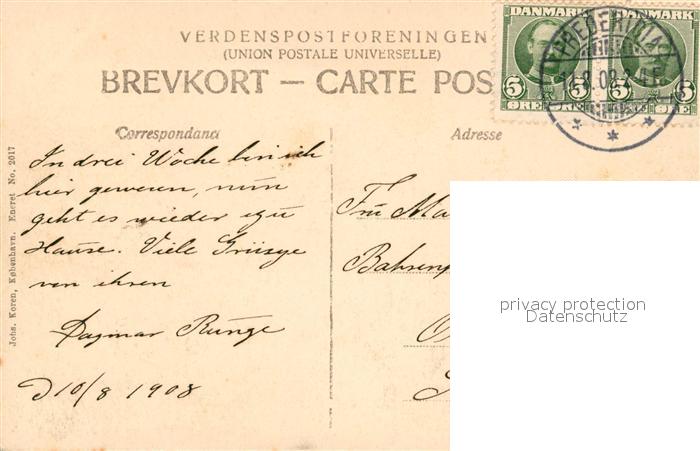 VERDENSPOSTFORENINGEN
(UNION POSTALE UNIVERSELLE)
BREVKORT — CARTE POS
DANMARK DANMARK
5 5 5 5
ØRE ØRE
Correspondance
Adresse
In drei Woche bin ich
hier gewesen, nun
geht es wieder
Hause. Viele Grüsse
von ihren
Dagmar Runge
D 10/8 1908
Frü Ma
Johs. Koren, København. Eneret No. 2017
privacy protection
Datenschutz